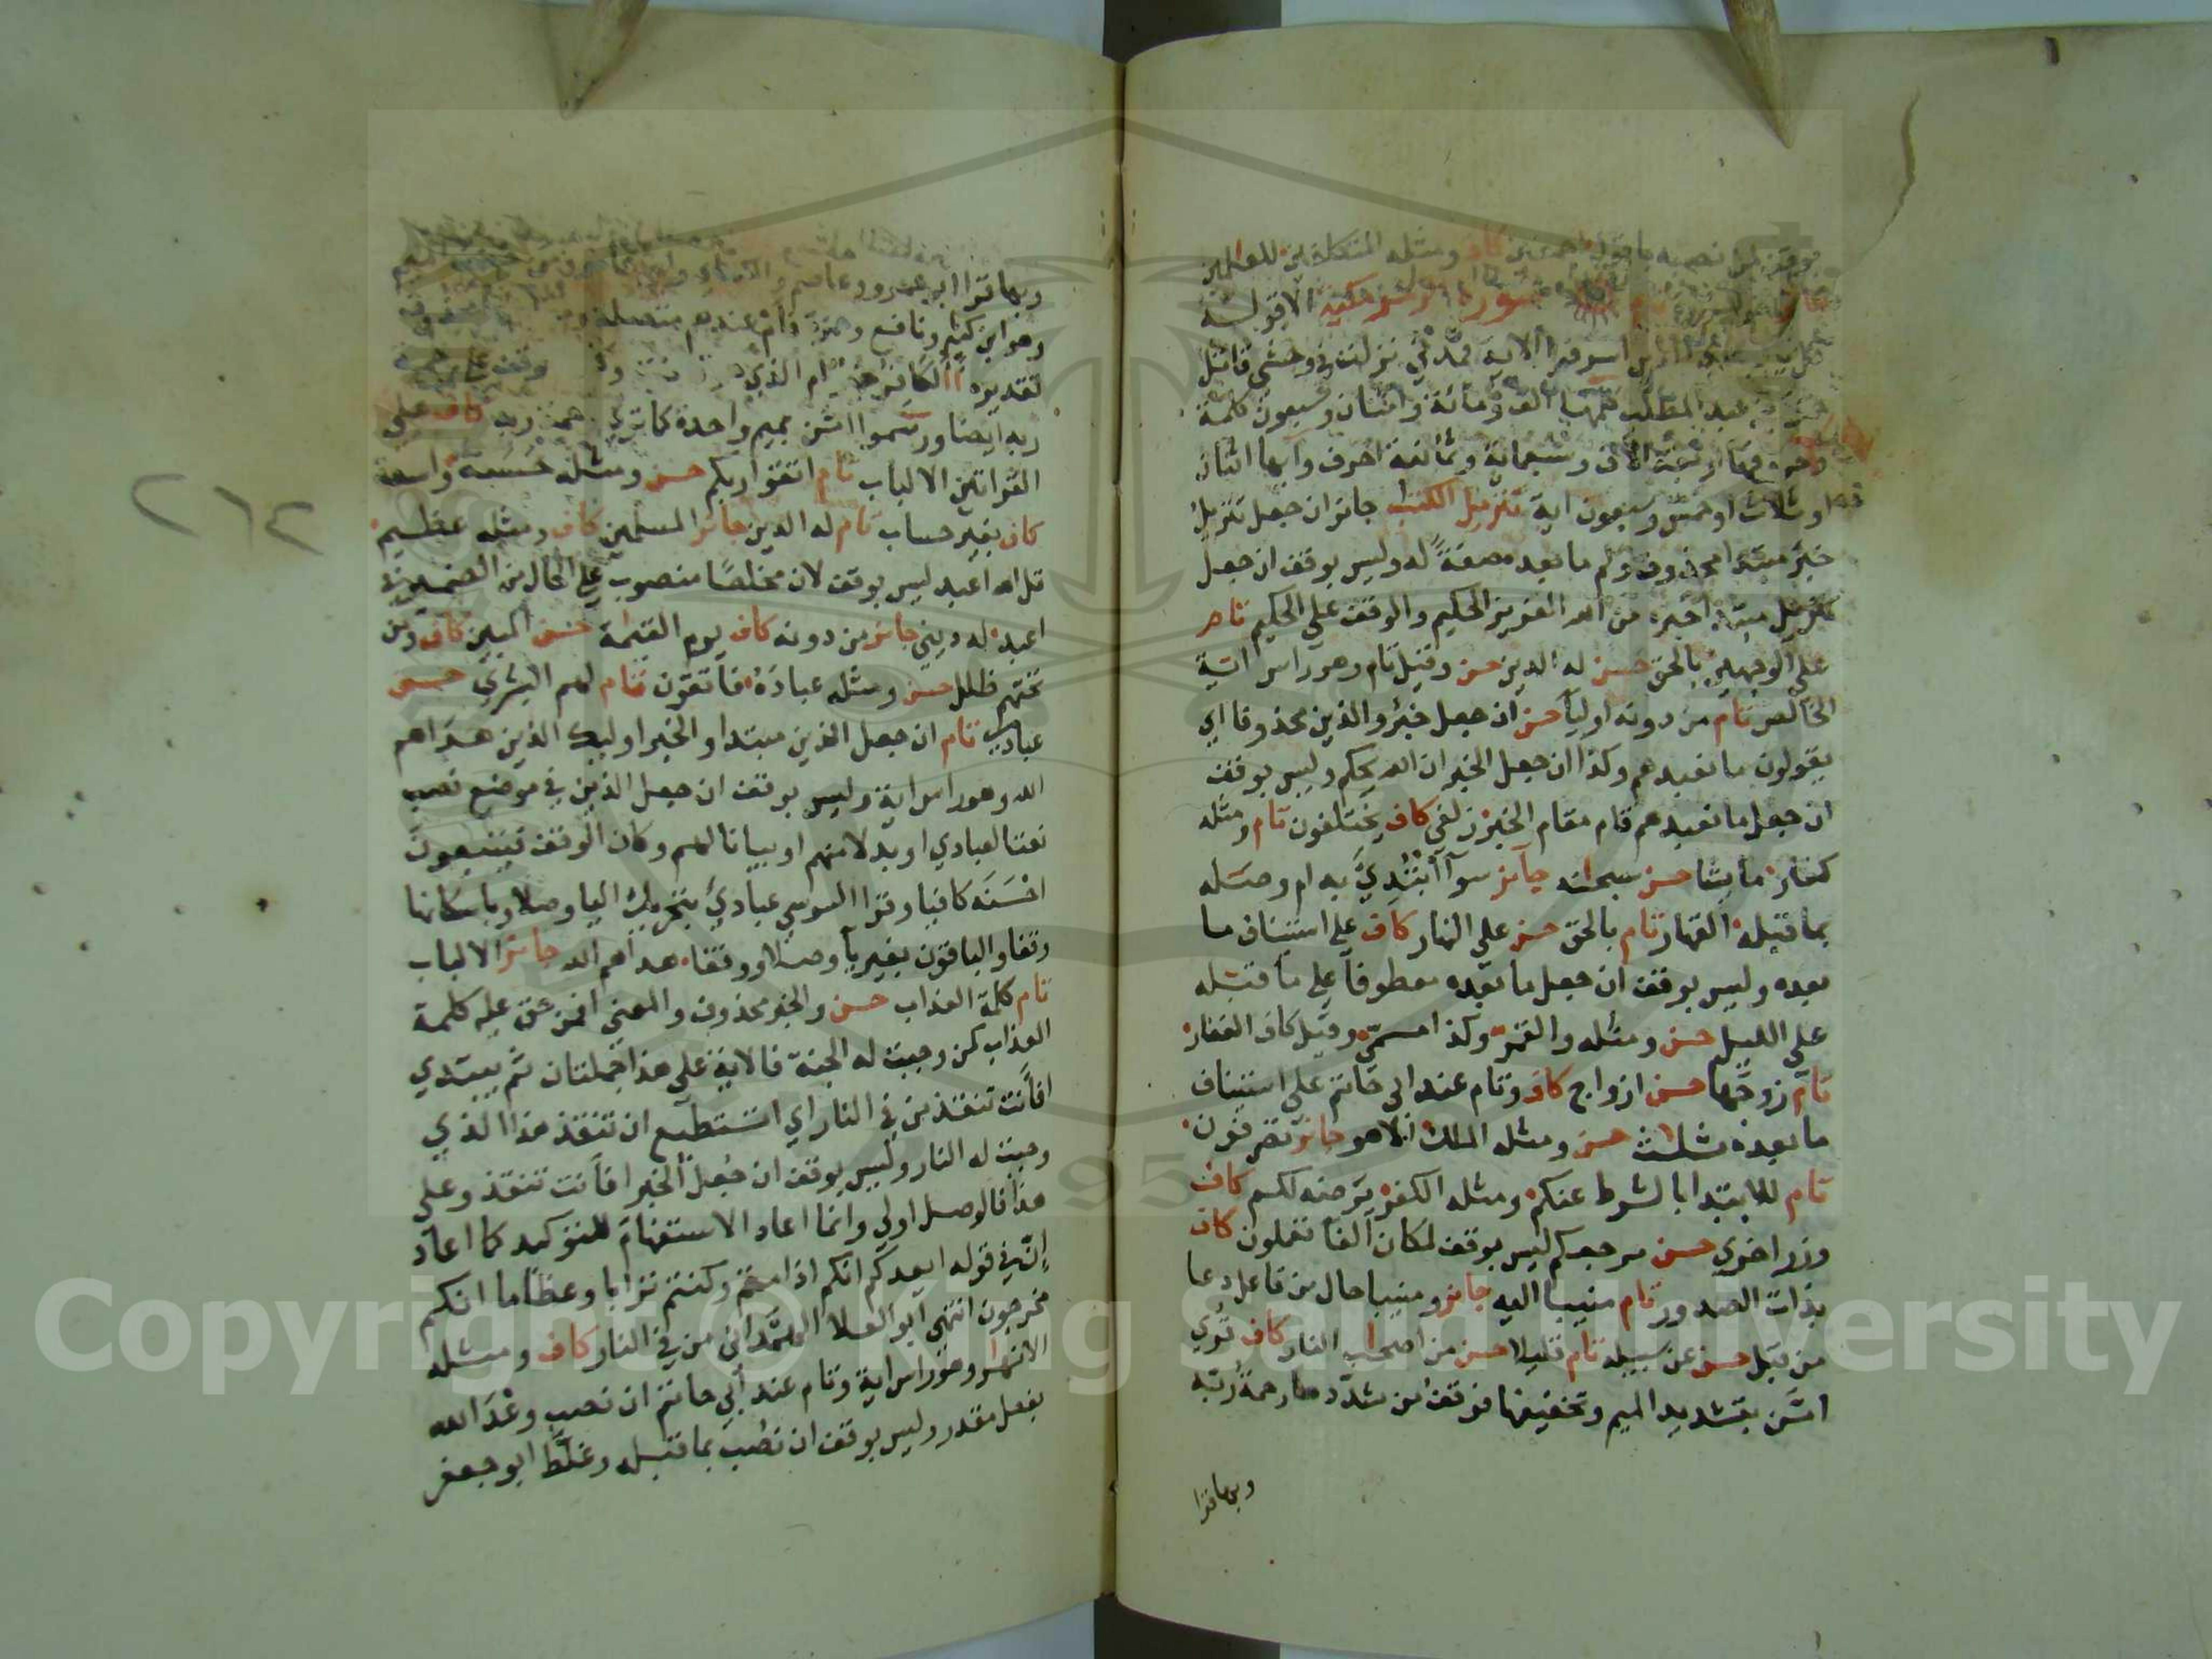 بوقف لمن نصبه باقول اجمعين كاف ومثله المتكلفين للعلمين
سورة الزمر مكية الا قوله
الذين اسرفوا الاية فمدني نزلت في وحشي قاتل
حمزة بن عبد المطلب كلمها الف ومائة واثنان وسبعون كلمة
وحروفها اربعة الاف وتسعماية وثمانية احرف وآيها اثنان
او ثلاث او خمس وسبعون اية تنزيل الكتب جائز ان جعل تنزيل
خبر مبتدا محذوف ولم ما بعده صفة له وليس بوقف ان جعل
تنزيل مبتدا خبره من الله العزيز الحكيم والوقف على الحكيم تام
على الوجهين بالحق حسن له الدين حسن وقيل تام وهو راس اية
الخالص تام من دونه اوليا حسن ان جعل خبر والذين محذوفا اي
يقولون ما نعبدهم وكذا ان جعل الخبر ان الله يحكم وليس بوقف
ان جعل ما نعبدهم قام مقام الخبر زلفي كاف يختلفون تام ومثله
كفار ما يشا حسن سبحانه جائز سوآ ابتدئ به ام وصله
بما قبله القهار تام بالحق حسن على النهار كاف على استئناف ما
بعده وليس بوقف ان جعل ما بعده معطوفا على ما قبله
على الليل حسن ومثله والقمر وكذا مسمى وقيل كاف الغفار
تام زوجها حسن ازواج كاف وتام عند ابي حاتم على استيناف
ما بعده ثلث حسن ومثله الملك الا هو جائز تصرفون
تام للابتدا بالشرط عنكم ومثله الكفر يرضه لكم كاف
وزر اخري حسن مرجعكم ليس بوقف لمكان الفا تعملون كاف
بذات الصدور تام منيبا اليه جائز ومنيبا حال من فاعل دعا
من قبل حسن عن سبيله تام قليلا حسن من اصحاب النار كاف قري
امن بتشديد الميم وتخفيفها فوقف من شددها رحمة ربه
وبها قرا
وبها قرا ابو عمرو وعاصم
وهو ابن كثير ونافع وحمزة فام عندهم متصلة
تقديره االكافر خير ام الذي
ربه ايضا ورسموا امن بميم واحدة كما تري رحمة ربه كاف على
القراتين الالباب تام اتقوا ربكم حسن ومثله حسنة واسعة
كاف بغير حساب تام له الدين جائز المسلمين كاف ومثله عظيم
قل الله اعبد ليس بوقف لان مخلصا منصوب على الحال من الضمير في
اعبد له ديني جائز من دونه كاف يوم القيمة حسن المبين كاف ومن
تحتهم ظلل حسن ومثله عباده فاتقون تام لهم البشري حسن
عبادي تام ان جعل الذين مبتدا والخبر اوليك الذين هداهم
الله وهو راس اية وليس بوقف ان جعل الذين في موضع نصب
نعتا لعبادي او بدلا منهم او بيانا لهم وكان الوقف فيتبعون
احسنه كافيا وقرا السوسي عبادي بتحريك اليا وصلا وباسكانها
وقفا والباقون بغير يآ وصلا ووقفا هداهم الله جائز الالباب
تام كلمة العذاب حسن والخبر محذوف والمعني افمن حق عليه كلمة
العذاب كمن وجبت له الجنة فالاية على هذا جملتان ثم يبتدي
افانت تنقذ من في النار اي اتستطيع ان تنقذ هذا الذي
وجبت له النار وليس بوقف ان جعل الخبر افانت تنقذ وعلى
هذا فالوصل اولي وانما اعاد الاستفهام للتوكيد كما اعاد
ان في قوله ايعدكم انكم اذا متم وكنتم ترابا وعظاما انكم
مخرجون انتهى ابو العلا الهمداني من في النار كاف ومثله
الانهر وهو راس اية وتام عند ابي حاتم ان نصب وعد الله
بفعل مقدر وليس بوقف ان نصب بما قبله وغلط ابو جعفر
٢٦٢
Copyright © King Saud University